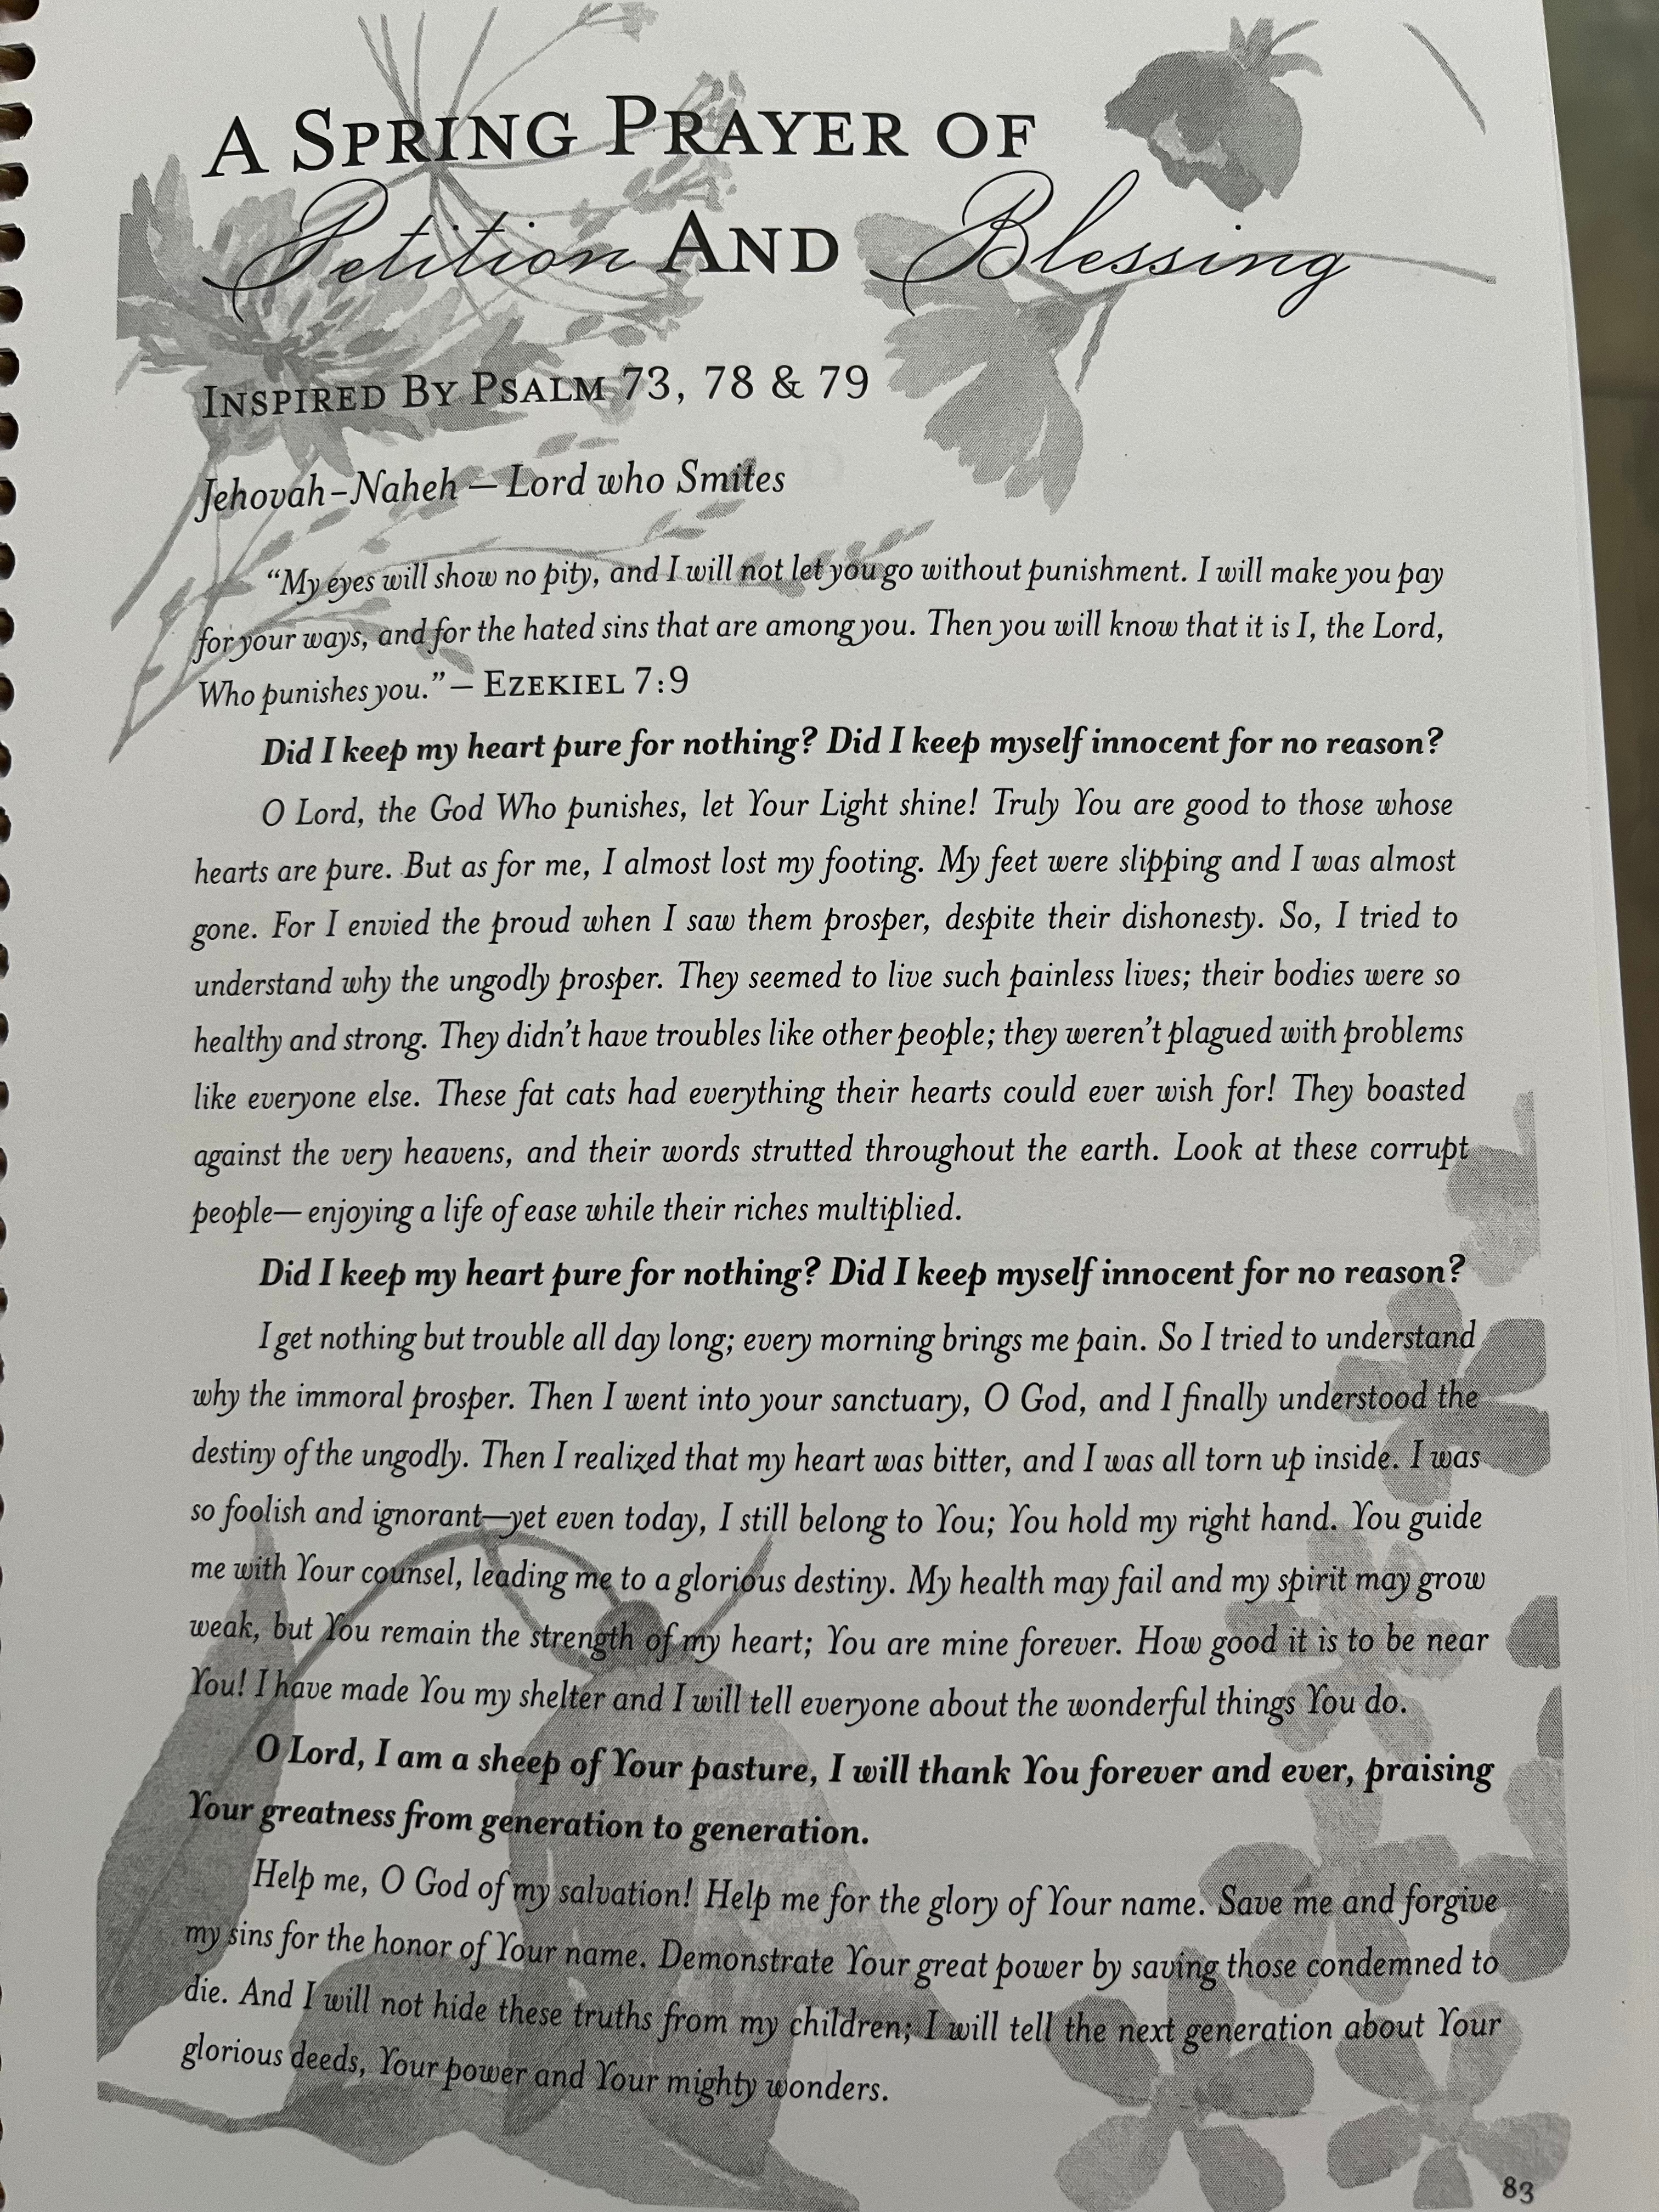 A Spring Prayer of
Petition And Blessing
Inspired By Psalm 73, 78 & 79
Jehovah-Naheh — Lord who Smites
“My eyes will show no pity, and I will not let you go without punishment. I will make you pay
for your ways, and for the hated sins that are among you. Then you will know that it is I, the Lord,
Who punishes you.” — Ezekiel 7:9
Did I keep my heart pure for nothing? Did I keep myself innocent for no reason?
O Lord, the God Who punishes, let Your Light shine! Truly You are good to those whose
hearts are pure. But as for me, I almost lost my footing. My feet were slipping and I was almost
gone. For I envied the proud when I saw them prosper, despite their dishonesty. So, I tried to
understand why the ungodly prosper. They seemed to live such painless lives; their bodies were so
healthy and strong. They didn’t have troubles like other people; they weren’t plagued with problems
like everyone else. These fat cats had everything their hearts could ever wish for! They boasted
against the very heavens, and their words strutted throughout the earth. Look at these corrupt
people— enjoying a life of ease while their riches multiplied.
Did I keep my heart pure for nothing? Did I keep myself innocent for no reason?
I get nothing but trouble all day long; every morning brings me pain. So I tried to understand
why the immoral prosper. Then I went into your sanctuary, O God, and I finally understood the
destiny of the ungodly. Then I realized that my heart was bitter, and I was all torn up inside. I was
so foolish and ignorant—yet even today, I still belong to You; You hold my right hand. You guide
me with Your counsel, leading me to a glorious destiny. My health may fail and my spirit may grow
weak, but You remain the strength of my heart; You are mine forever. How good it is to be near
You! I have made You my shelter and I will tell everyone about the wonderful things You do.
O Lord, I am a sheep of Your pasture, I will thank You forever and ever, praising
Your greatness from generation to generation.
Help me, O God of my salvation! Help me for the glory of Your name. Save me and forgive
my sins for the honor of Your name. Demonstrate Your great power by saving those condemned to
die. And I will not hide these truths from my children; I will tell the next generation about Your
glorious deeds, Your power and Your mighty wonders.
83